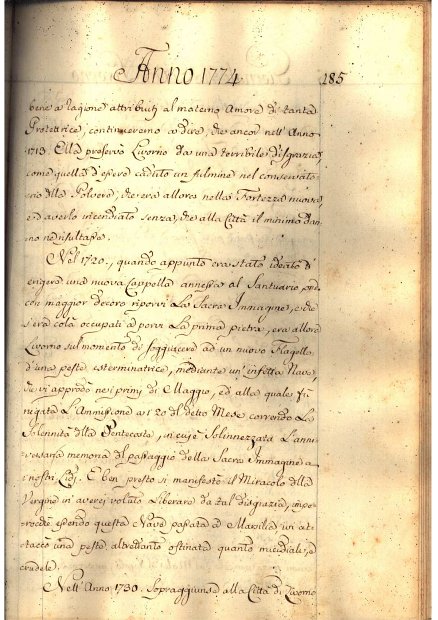 Anno 1774 185
bene a ragione attribuiti al materno Amore di tanta
Protettrice, continueremo a dire, che ancor nell'Anno
1713. Ella preservò Livorno da una terribile disgrazia,
come quella d'essere caduto un fulmine nel conservato=
rio della Polvere, che era allora nella Fortezza nuova
ed averlo incendiato senza, che alla Città il minimo dan=
no ne risultasse.
Nel 1720., quando appunto era stato ideato d'
erigere una nuova Cappella annessa al Santuario per
con maggior decoro riporvi La Sacra Immagine, e che
s'era colà occupati a porvi La prima pietra, era allora
Livorno sul momento di soggiacere ad un nuovo Flagello
d'una peste esterminatrice, mediante un'infetta Nave,
che vi approdò ne' primi di Maggio, ed alla quale fù
negata L'Ammissione a' 20 del detto Mese correndo La
Solennità della Pentecoste, in cui è Solennizzata L'anni=
versaria memoria del passaggio della Sacra Immagine a
i nostri Lidi. E ben presto si manifestò il Miracolo della
Vergine in averci voluto Liberare da tal disgrazia, impe=
rocchè essendo questa Nave passata a Marsilia ivi at=
taccò una peste altrettanto ostinata quanto micidiale, e
crudele.
Nell'Anno 1730. Sopraggiunse alla Città di Livorno